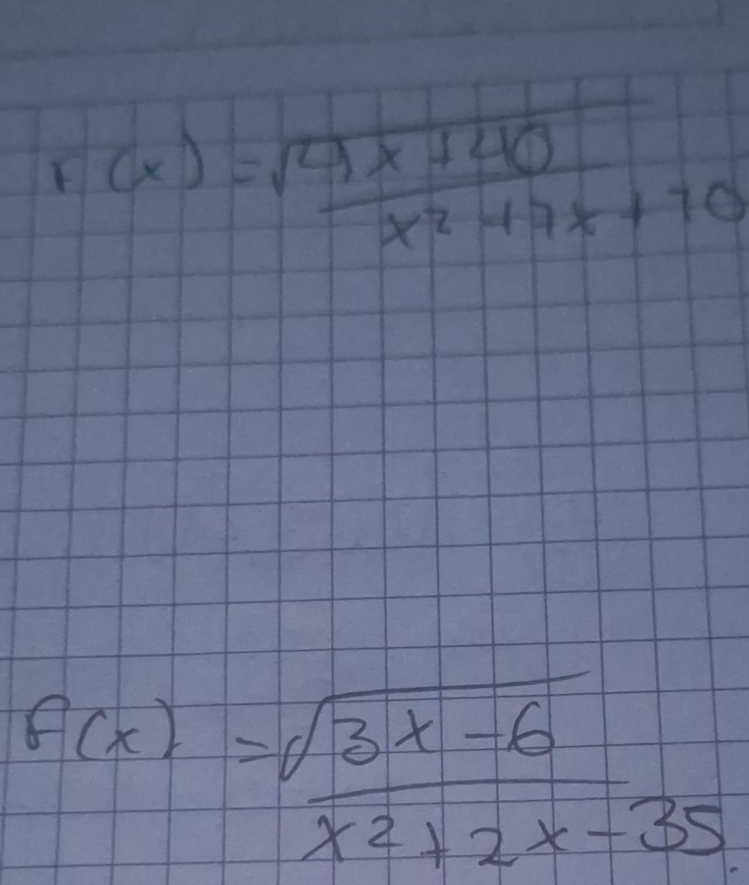 r(x) = √4x+40
x2 +7x+10
f(x) = √3x-6
x2+2x-35.